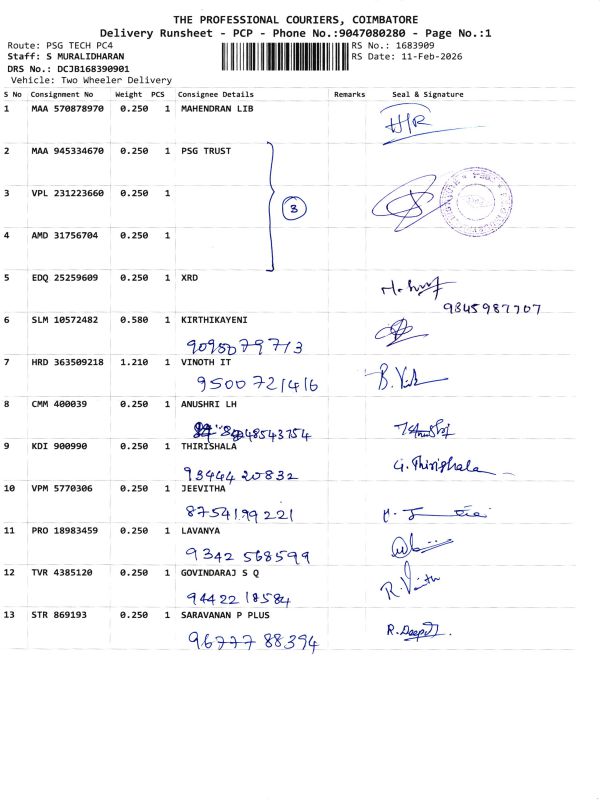 THE PROFESSIONAL COURIERS, COIMBATORE
Delivery Runsheet - PCP - Phone No.:9047080280 - Page No.:1
Route: PSG TECH PC4 RS No.: 1683909
Staff: S MURALIDHARAN RS Date: 11-Feb-2026
DRS No.: DCJB168390901
Vehicle: Two Wheeler Delivery
S No Consignment No Weight PCS Consignee Details Remarks Seal & Signature
1 MAA 570878970 0.250 1 MAHENDRAN LIB
2 MAA 945334670 0.250 1 PSG TRUST
3 VPL 231223660 0.250 1
3
4 AMD 31756704 0.250 1
5 EDQ 25259609 0.250 1 XRD
9345987707
6 SLM 10572482 0.580 1 KIRTHIKAYENI
9095079713
7 HRD 363509218 1.210 1 VINOTH IT
9500721416
8 CMM 400039 0.250 1 ANUSHRI LH
48543754
9 KDI 900990 0.250 1 THIRISHALA
G.Thirishala
9344420832
10 VPM 5770306 0.250 1 JEEVITHA
8754199221
11 PRO 18983459 0.250 1 LAVANYA
9342568599
12 TVR 4385120 0.250 1 GOVINDARAJ S Q
9442218584
13 STR 869193 0.250 1 SARAVANAN P PLUS
9677788394